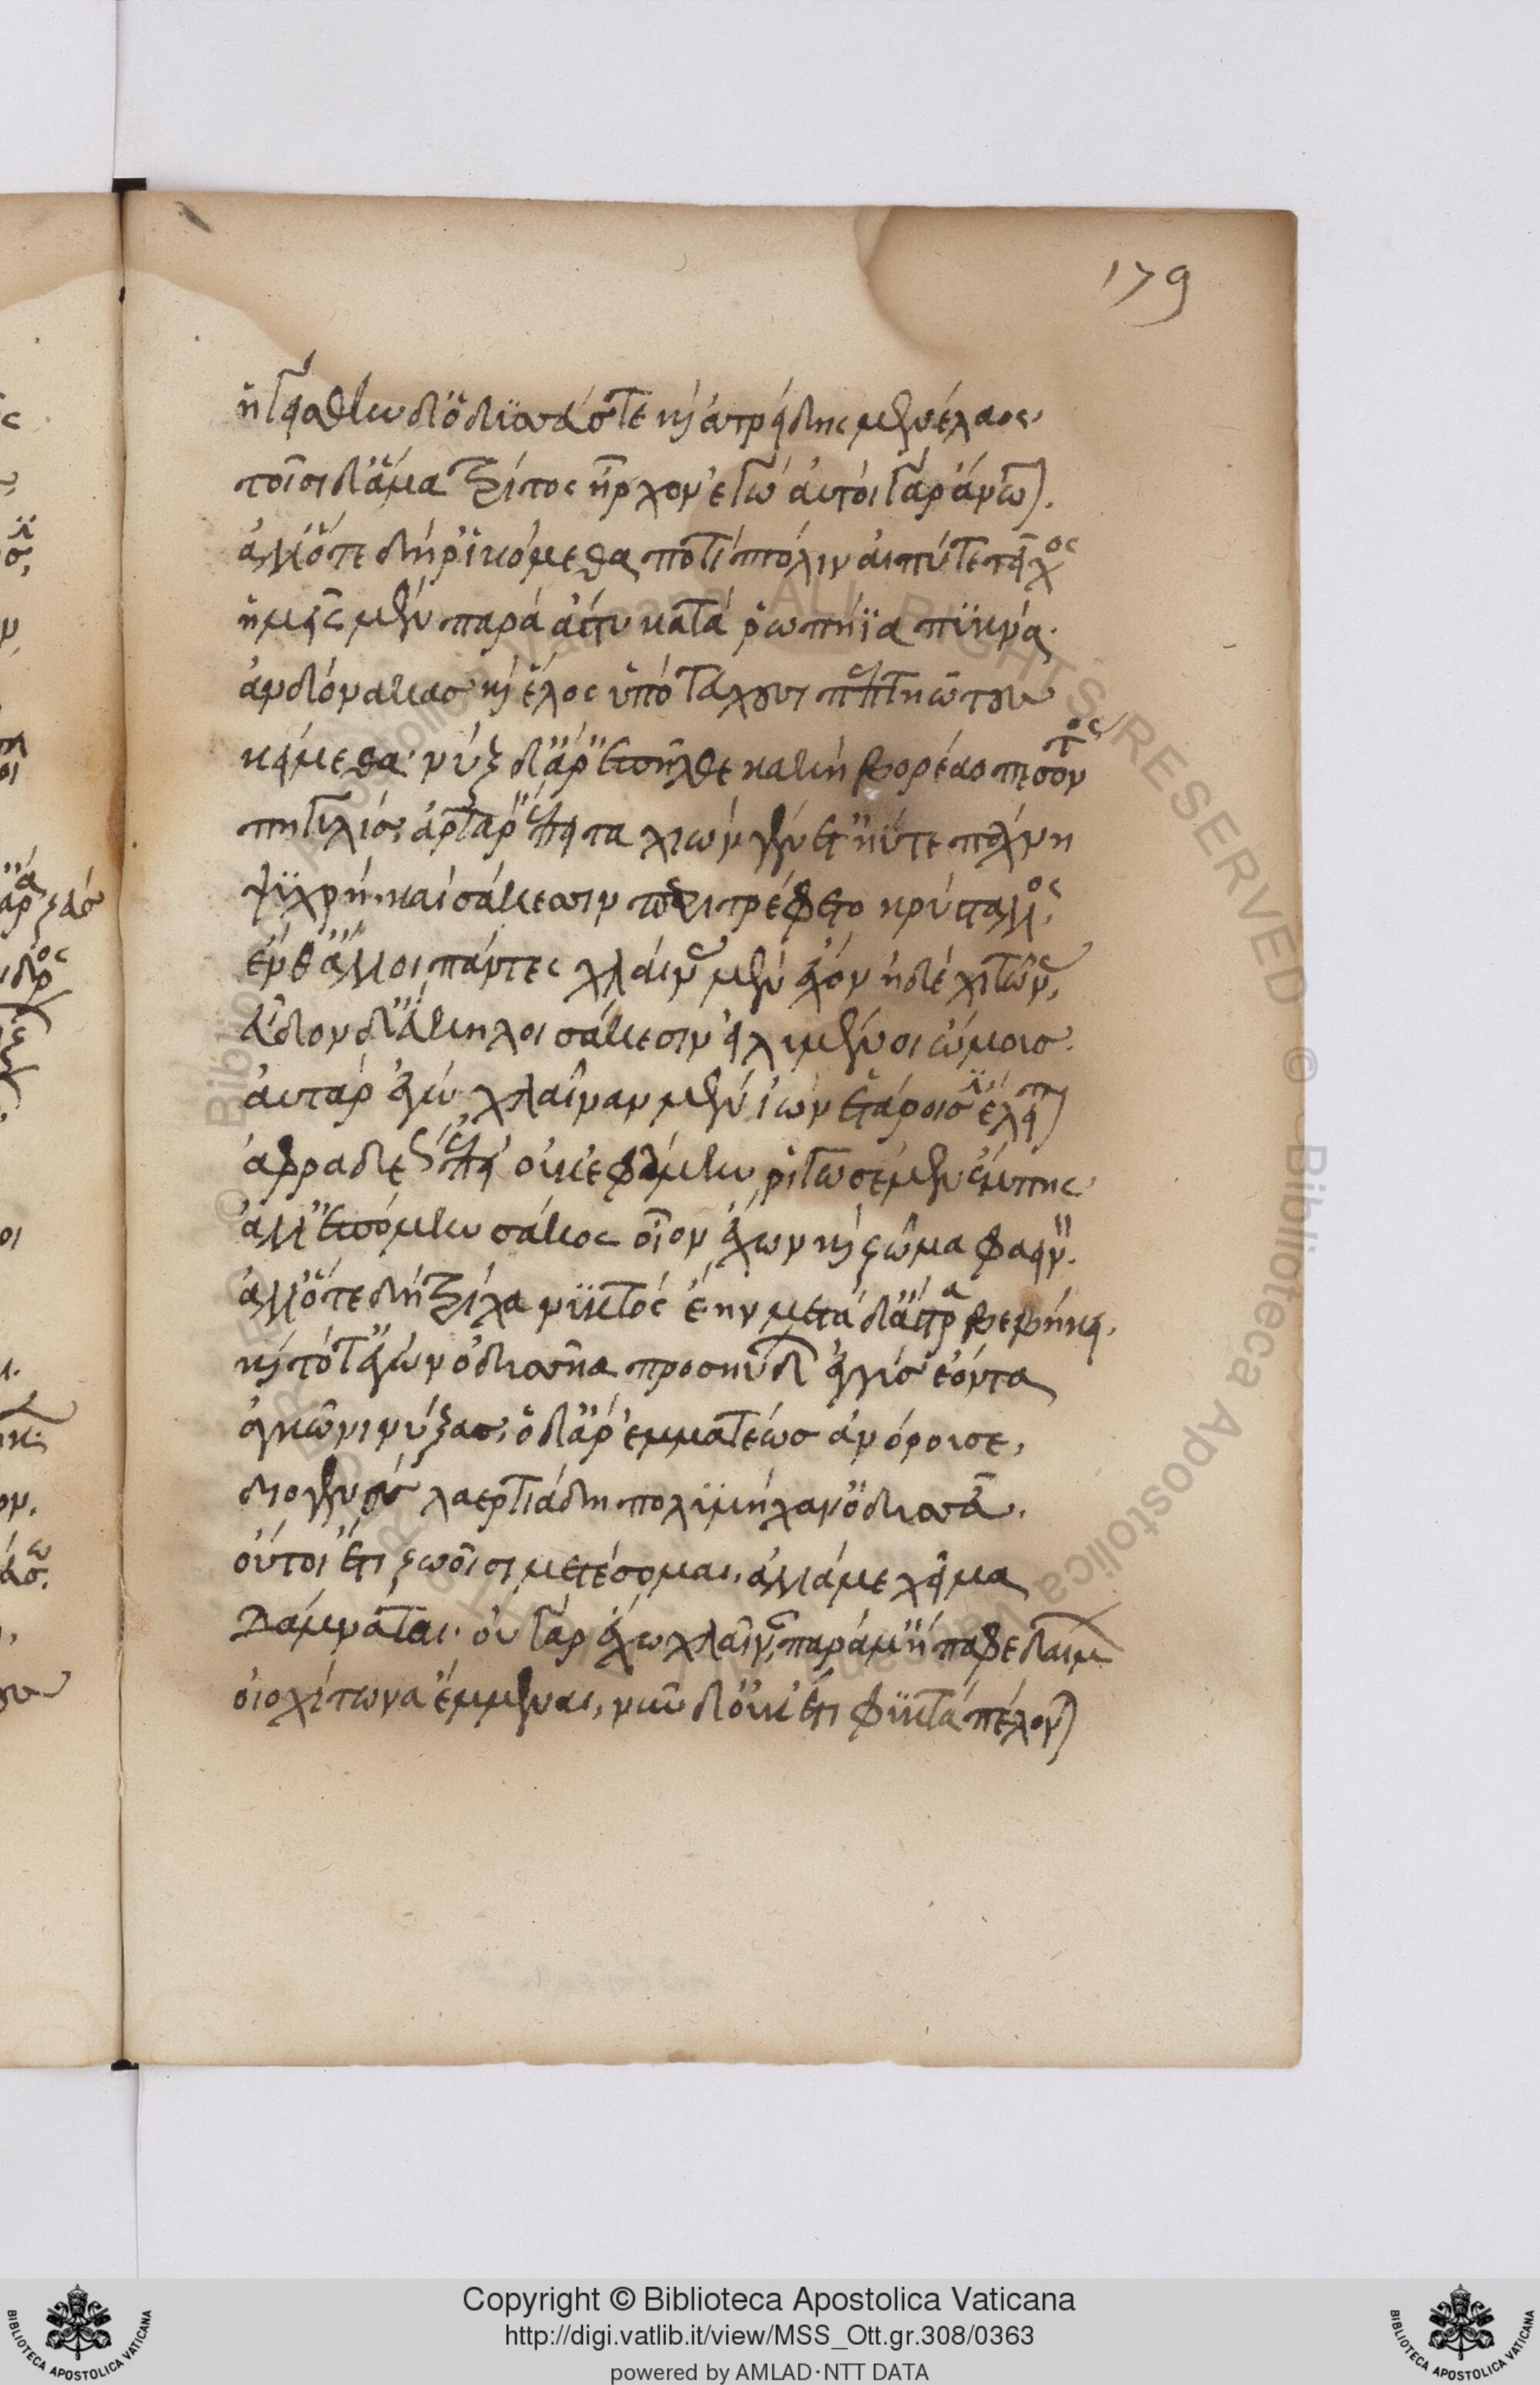 179
ἡγείσθην δ' ὀδυσσεύς τε καὶ ἀτρείδης μενέλαος·
τοῖσι δ' ἅμα τρίτος ἦρχον ἐγών· αὐτοὶ γὰρ ἄνωγον.
ἀλλ' ὅτε δή ῥ' ἱκόμεσθα ποτὶ πτόλιν αἰπύ τε τεῖχος
ἡμεῖς μὲν παρὰ ἄστυ κατὰ ῥωπήϊα πυκνά·
ἂν δόνακας καὶ ἕλος ὑπὸ τεύχεσι πεπτηῶτες
κείμεθα· νὺξ δ' ἄρ' ἐπῆλθε κακὴ βορέαο πεσόντος
πηγυλίς· αὐτὰρ ὕπερθε χιὼν γένετ' ἠΰτε πάχνη
ψυχρή· καὶ σάκεσσιν περιτρέφετο κρύσταλλος·
ἔνθ' ἄλλοι πάντες χλαίνας μὲν ἔχον ἠδὲ χιτῶνας,
εὗδον δ' εὔκηλοι σάκεσιν εἰλυμένοι ὤμους·
αὐτὰρ ἐγὼ χλαῖναν μὲν ἰὼν ἑτάροισιν ἔλειπον
ἀφραδίῃς· ἐπεὶ οὐκ ἐφάμην ῥιγωσέμεν ἔμπης
ἀλλ' ἑπόμην σάκος οἶον ἔχων καὶ ζῶμα φαεινόν·
ἀλλ' ὅτε δὴ τρίχα νυκτὸς ἔην μετὰ δ' ἄστρα βεβήκει·
καὶ τότ' ἐγὼν ὀδυσῆα προσηύδων ἐγγὺς ἐόντα
ἀγκῶνι νύξας· ὁ δ' ἄρ' ἐμματέως ὑπάκουσε,
διογενὲς λαερτιάδη πολυμήχαν' ὀδυσσεῦ·
οὔτοι ἔτι ζωοῖσι μετέσομαι, ἀλλά με χεῖμα
δάμναται· οὐ γὰρ ἔχω χλαῖναν, παρά μ' ἤπαφε δαίμων
οἰοχίτωνα ἔμμεναι, νῦν δ' οὐκέτι φυκτὰ πέλονται
Copyright © Biblioteca Apostolica Vaticana
http://digi.vatlib.it/view/MSS_Ott.gr.308/0363
powered by AMLAD·NTT DATA